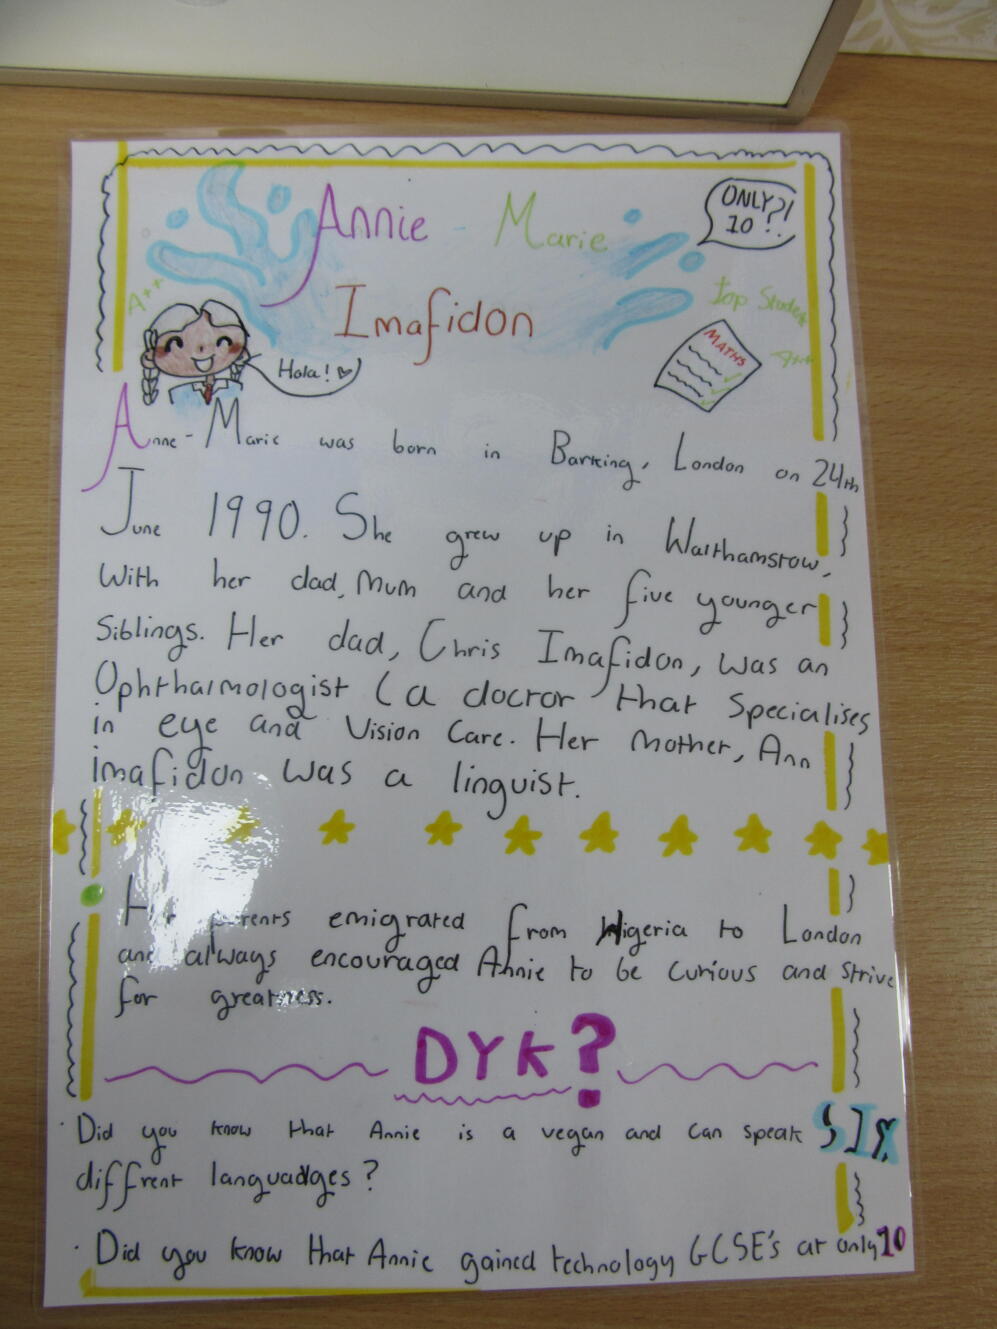 Annie - Marie
ONLY?!
10 ?!.
A++
Imafidon
Top Student
MATHS
A++
Hola!
Anne - Marie was born in Barking, London on 24th
June 1990. She grew up in Walthamstow,
With her dad, Mum and her five younger
Siblings. Her dad, Chris Imafidon, was an
Ophthalmologist (a doctror that Specialises
in eye and Vision Care. Her Mother, Ann
imafidon was a linguist.
Her parents emigrated from Nigeria to London
and always encouraged Annie to be curious and strive
for greatness.
DYK?
· Did you know that Annie is a vegan and can speak SIX
diffrent languadges?
· Did you know that Annie gained technology GCSE's at only 10